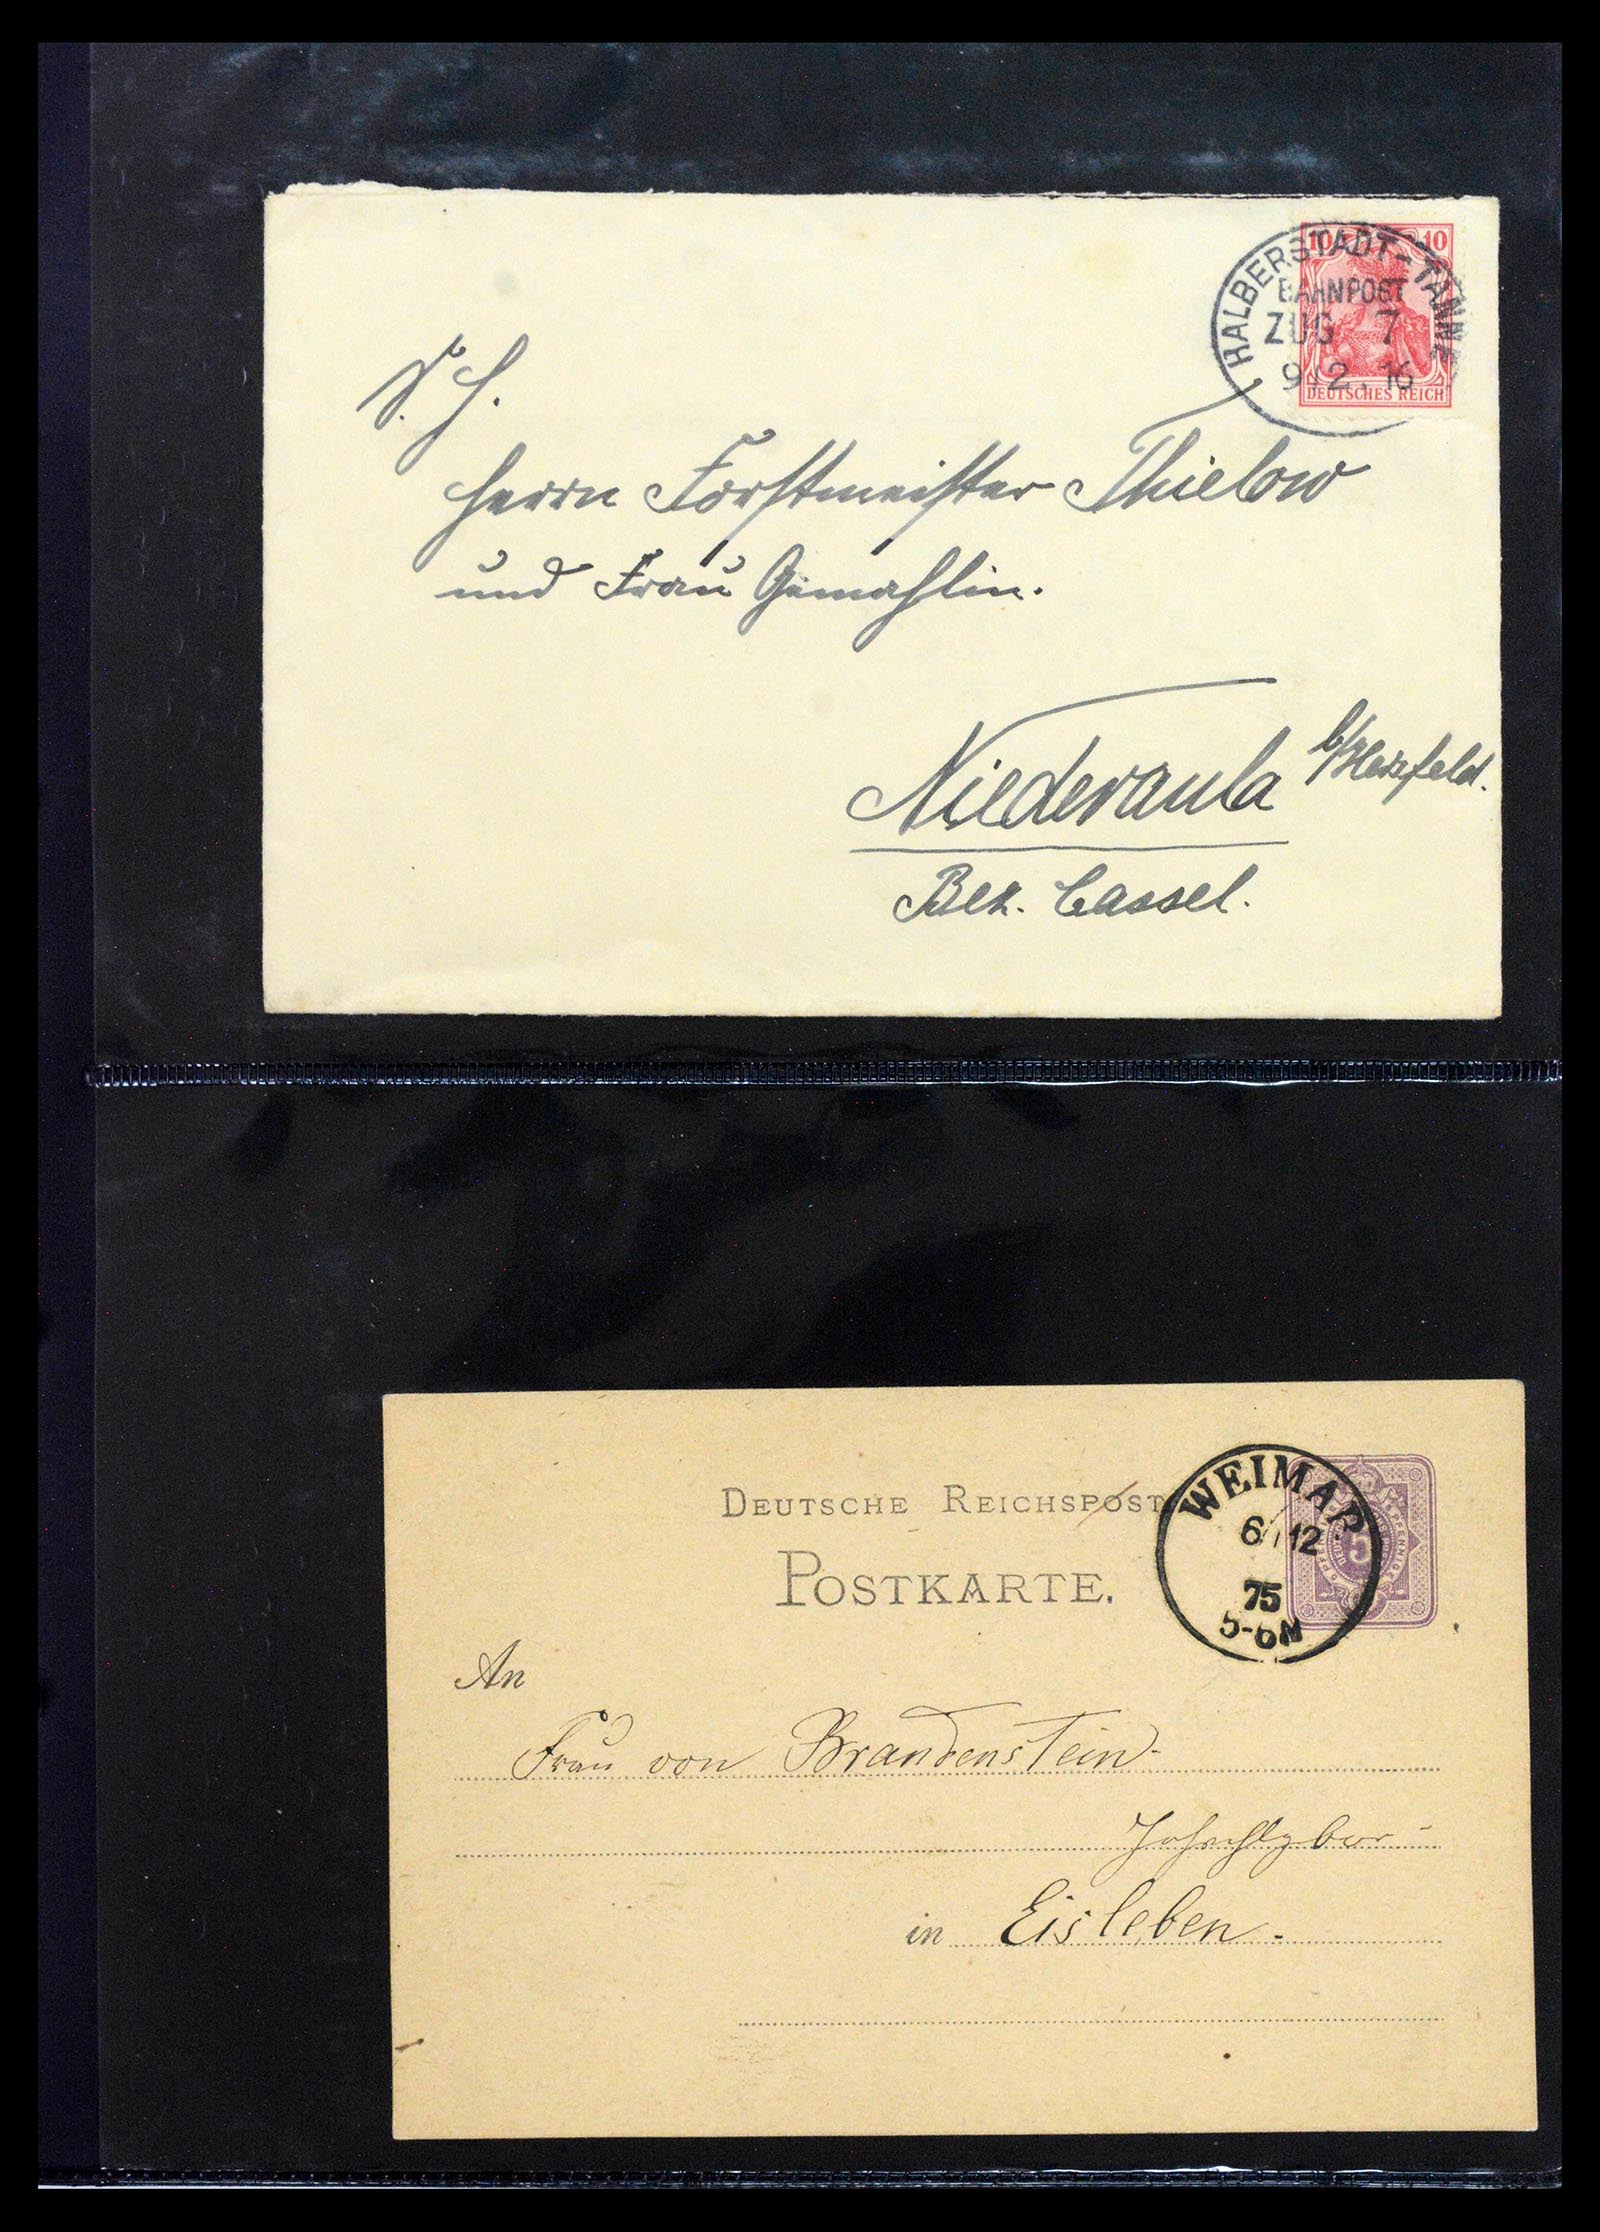 10 10
HALBERSTADT-TANNE
BAHNPOST
ZUG 7
9 12. 16
DEUTSCHES REICH
S. H.
Herrn Forstmeister Thielow
und Frau Gemahlin.
Niederaula b/Hersfeld.
Bez. Cassel.
DEUTSCHE REICHSPOST
POSTKARTE.
WEIMAR
6/12
75
5-6N
5
An
Frau von Brandenstein
in Eisleben.